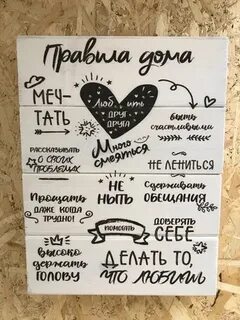 Правила дома
МЕЧ-
ТАТЬ
Люб ить
ДРУГ
ДРУГА
быть
счастливыми
РАССКАЗЫВАТЬ
О СВОИХ
ПРОБЛЕМАХ
Много
смеяться
НЕ ЛЕНИТЬСЯ
Прощать
ДАЖЕ КОГДА
ТРУДНО!
НЕ
НЫТЬ
Сдерживать
ОБЕЩАНИЯ
ПОМОГАТЬ
ДОВЕРЯТЬ
СЕБЕ
Высоко
держать
ГОЛОВУ
ДЕЛАТЬ ТО,
ЧТО ЛЮБИШЬ